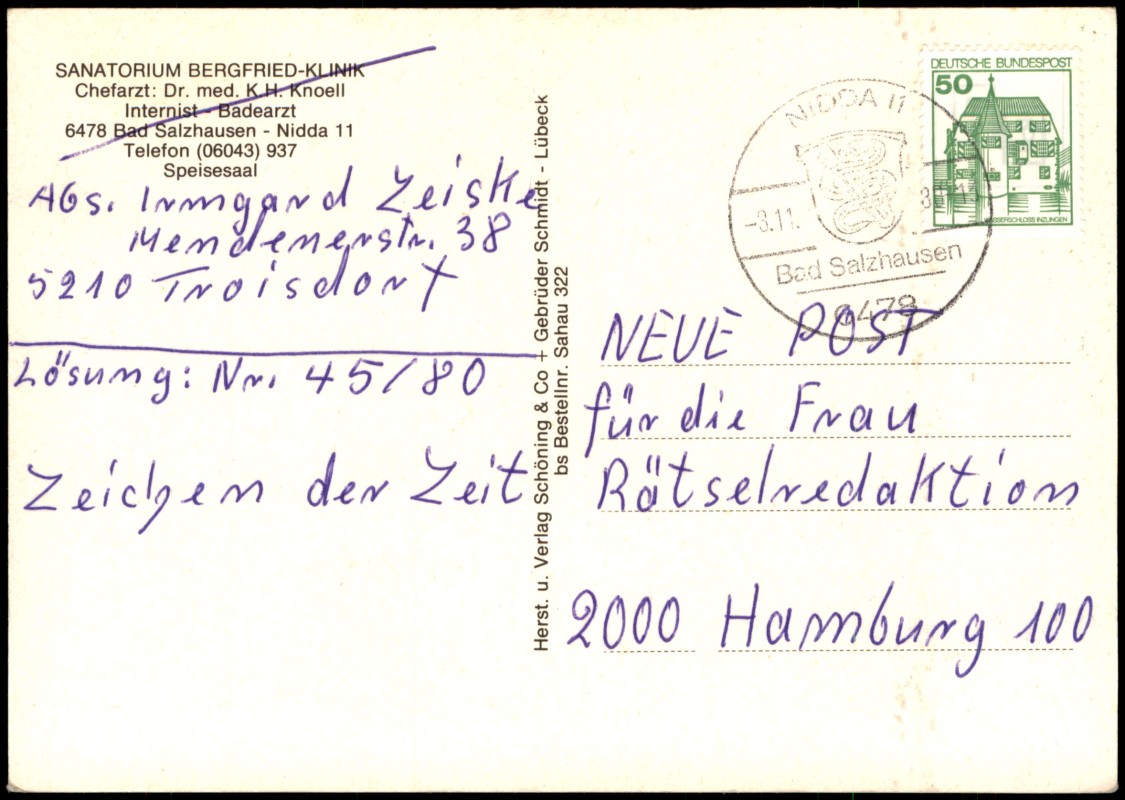 SANATORIUM BERGFRIED-KLINIK
Chefarzt: Dr. med. K.H. Knoell
Internist - Badearzt
6478 Bad Salzhausen - Nidda 11
Telefon (06043) 937
Speisesaal
Abs. Irmgard Zeiske
Mendenerstr. 38
5210 Troisdorf
Lösung: Nr. 45/80
Zeichen der Zeit
Herst. u. Verlag Schöning & Co + Gebrüder Schmidt - Lübeck
bs Bestellnr. Sahau 322
DEUTSCHE BUNDESPOST
50
WASSERSCHLOSS INZLINGEN
NIDDA 11
-3.11.
Bad Salzhausen
6478
NEUE POST
für die Frau
Rätselredaktion
2000 Hamburg 100